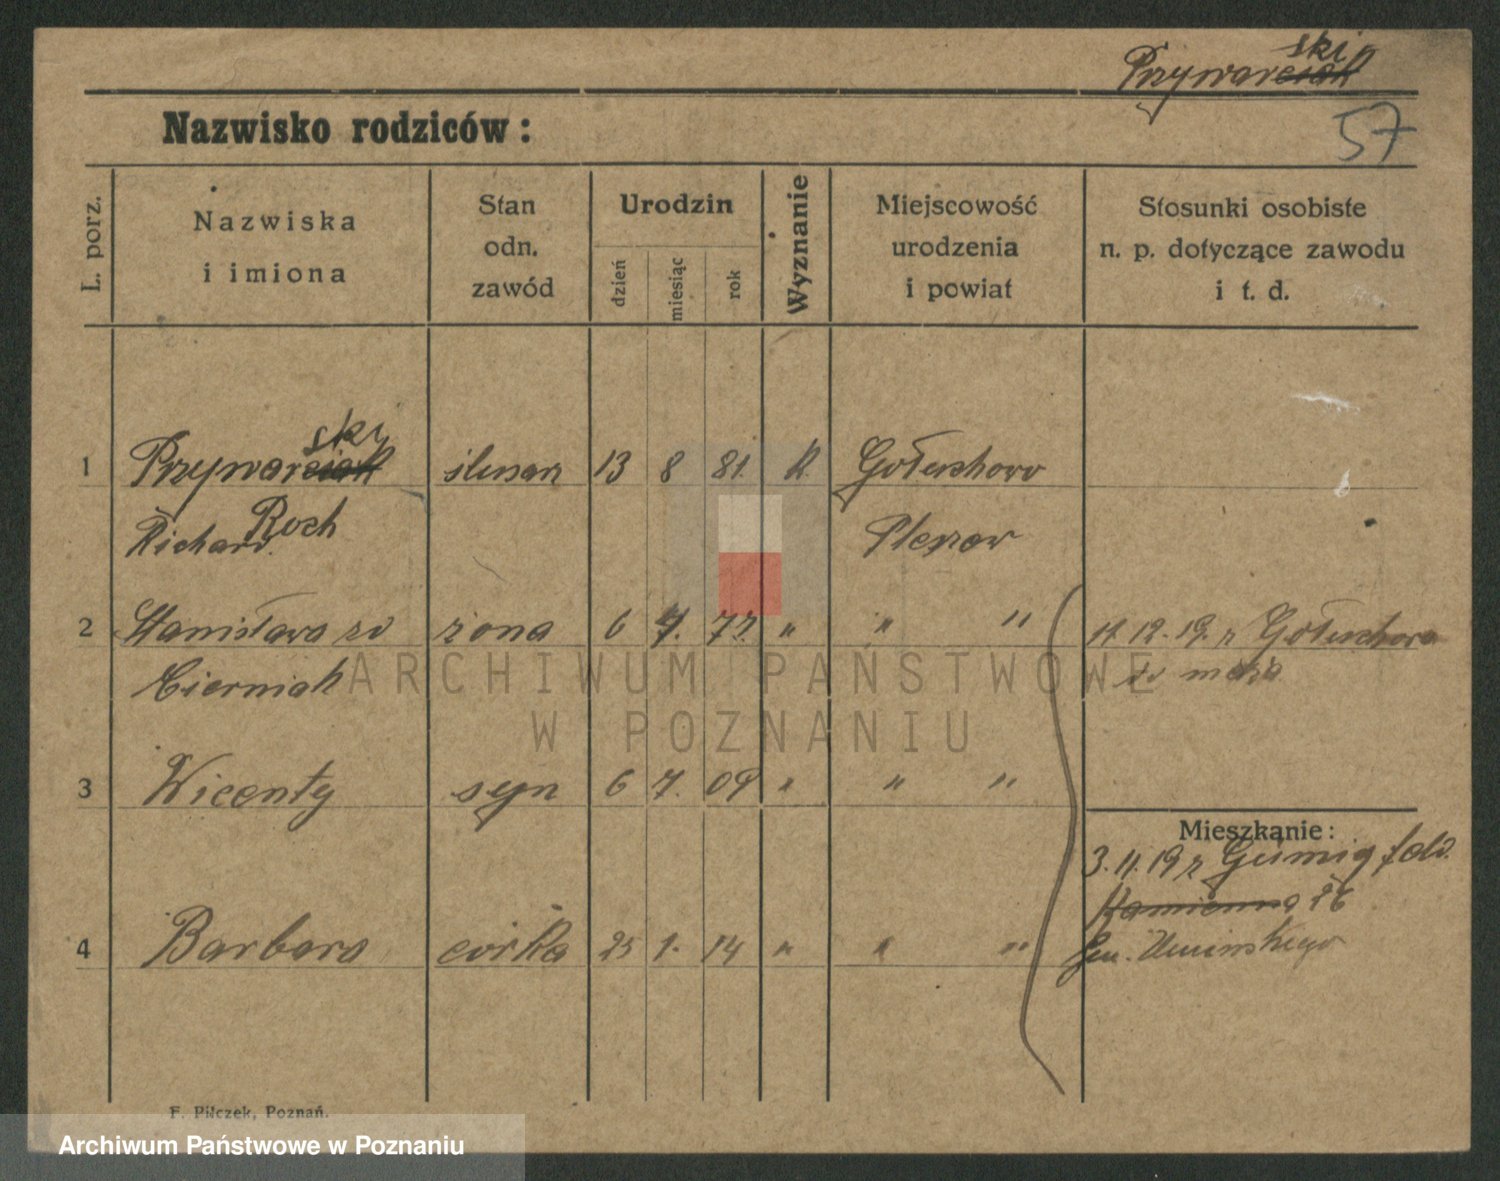 Przywarciak ski
57
Nazwisko rodziców:
L. porz.
Nazwiska
i imiona
Stan
odn.
zawód
Urodzin
dzień
miesiąc
rok
Wyznanie
Miejscowość
urodzenia
i powiat
Stosunki osobiste
n. p. dotyczące zawodu
i t. d.
1 Przywarciak ski ślusarz 13 8 81. K. Gołuchowo
Richard Roch Pleszew
2 Stanisława zd żona 6 4. 77. " " " 11.12.19. z Gołuchowa
Cierniak do męża
3 Wicenty syn 6 7. 09 " " "
Mieszkanie:
3.11.19 z
26
4 Barbara córka 25 1. 14 " " "
Gen. Umińskiego
F. Pilczek, Poznań.
ARCHIWUM PAŃSTWOWE
W POZNANIU
Archiwum Państwowe w Poznaniu